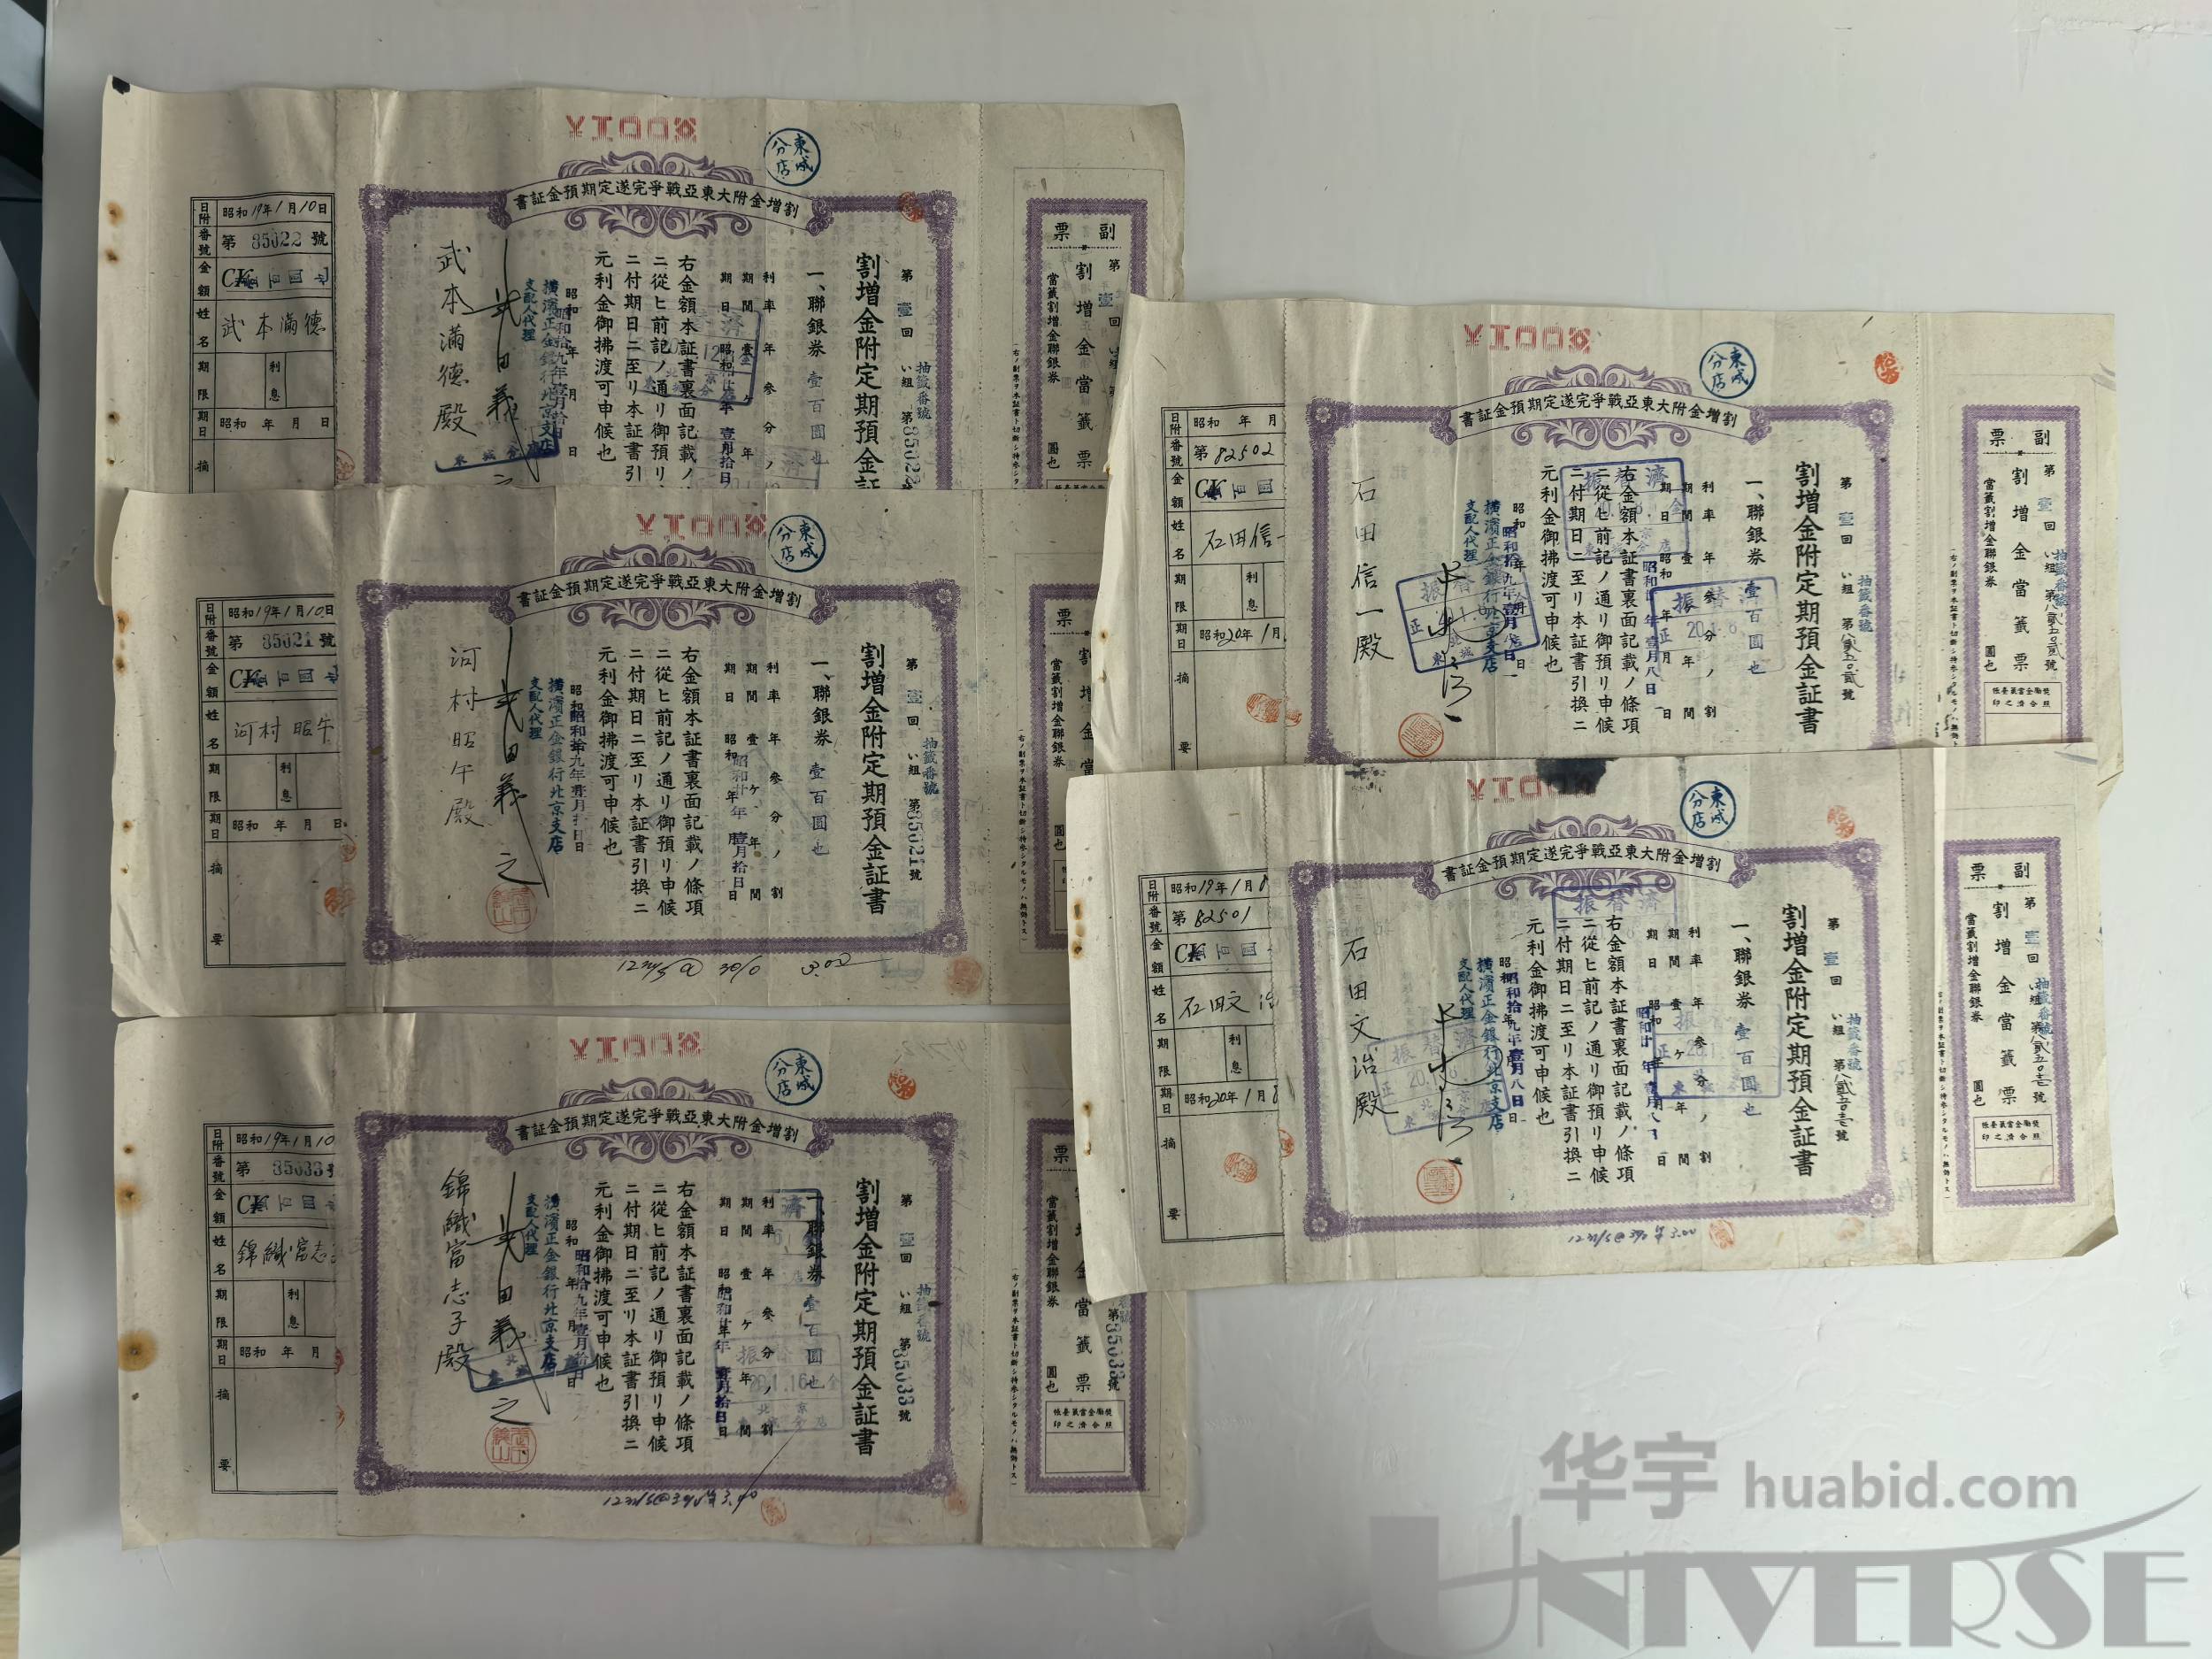 東城分店
割増金附大東亞戰爭完遂定期預金証書
割増金附定期預金証
第壹回
抽籤番號
い組 第85022
一、聯銀券 壹百圓也
利率 年 参分ノ
右金額本証書裏面記載ノ
ニ從ヒ前記ノ通リ御預リ
ニ付期日ニ至リ本証書引
元利金御拂渡可申候也
横濱正金銀行北京支店
支配人代理
武本滿德殿
日附 昭和19年1月10日
番號 第85022號
金額 CK
姓名 武本滿德
期限
利息
期日 昭和 年 月 日
摘
副票
第壹回
割増金當籤票
當籤割増金聯銀券 圓也
東城分店
割増金附大東亞戰爭完遂定期預金証書
割増金附定期預金証書
第壹回
抽籤番號
い組 第85021號
一、聯銀券 壹百圓也
利率 年 参分ノ 割
期間 壹ヶ年間
期日 昭和廿年壹月拾日
右金額本証書裏面記載ノ條項
ニ從ヒ前記ノ通リ御預リ申候
ニ付期日ニ至リ本証書引換ニ
元利金御拂渡可申候也
昭和拾九年壹月拾日
横濱正金銀行北京支店
支配人代理
武田義之
河村昭午殿
日附 昭和19年1月10日
番號 第85021號
金額 CK
姓名 河村昭午
期限
利息
期日 昭和 年 月 日
摘要
票
當籤割増金聯銀券 圓也
3.00
東城分店
割増金附大東亞戰爭完遂定期預金証書
割増金附定期預金証書
第壹回
抽籤番號
い組 第85033號
一、聯銀券 壹百圓也
利率 年 参分ノ 割
期間 壹ヶ年間
期日 昭和廿年壹月拾日
右金額本証書裏面記載ノ條項
ニ從ヒ前記ノ通リ御預リ申候
ニ付期日ニ至リ本証書引換ニ
元利金御拂渡可申候也
昭和拾九年壹月拾日
横濱正金銀行北京支店
支配人代理
武田義之
錦織富志子殿
日附 昭和19年1月10
番號 第85033
金額 CK
姓名 錦織富志
期限
利息
期日 昭和 年 月
摘要
票
第85033號
當籤割増金聯銀券 圓也
獎勵金當籤臺帳
照合濟之印
東城分店
割増金附大東亞戰爭完遂定期預金証書
割増金附定期預金証書
第壹回
抽籤番號
い組 第八貳五〇貳號
一、聯銀券 壹百圓也
利率 年 参分ノ 割
期間 壹 年間
期日 昭和 年壹月八日
右金額本証書裏面記載ノ條項
ニ從ヒ前記ノ通リ御預リ申候
ニ付期日ニ至リ本証書引換ニ
元利金御拂渡可申候也
昭和拾九年壹月八日
横濱正金銀行北京支店
支配人代理
石田信一殿
振替濟
日附 昭和 年 月
番號 第82502
金額 CK
姓名 石田信一
期限
利息
期日 昭和20年1月
摘要
副票
第壹回
い組 第八貳五〇貳號
抽籤番號
割増金當籤票
當籤割増金聯銀券 圓也
獎勵金當籤臺帳
照合濟之印
東城分店
割増金附大東亞戰爭完遂定期預金証書
割増金附定期預金証書
第壹回
抽籤番號
い組 第八貳五〇壱號
一、聯銀券 壹百圓也
利率 年 参分ノ 割
期間 壹ヶ年間
期日 昭和廿年壹月八日
右金額本証書裏面記載ノ條項
ニ從ヒ前記ノ通リ御預リ申候
ニ付期日ニ至リ本証書引換ニ
元利金御拂渡可申候也
昭和拾九年壹月八日
横濱正金銀行北京支店
支配人代理
石田文治殿
振替濟
日附 昭和19年1月8
番號 第82501
金額 CK
姓名 石田文治
期限
利息
期日 昭和20年1月8
摘要
副票
第壹回
い組 第八貳五〇壱號
抽籤番號
割増金當籤票
當籤割増金聯銀券 圓也
獎勵金當籤臺帳
照合濟之印
华宇 huabid.com
UNIVERSE